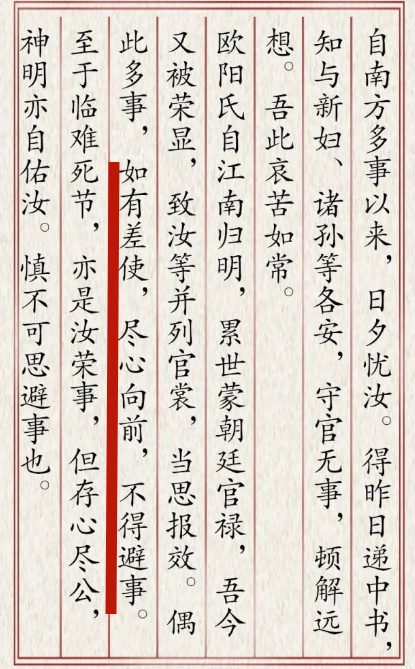 自南方多事以来，日夕忧汝。得昨日递中书，
知与新妇、诸孙等各安，守官无事，顿解远
想。吾此哀苦如常。
欧阳氏自江南归明，累世蒙朝廷官禄，吾今
又被荣显，致汝等并列官裳，当思报效。偶
此多事，如有差使，尽心向前，不得避事。
至于临难死节，亦是汝荣事，但存心尽公，
神明亦自佑汝。慎不可思避事也。